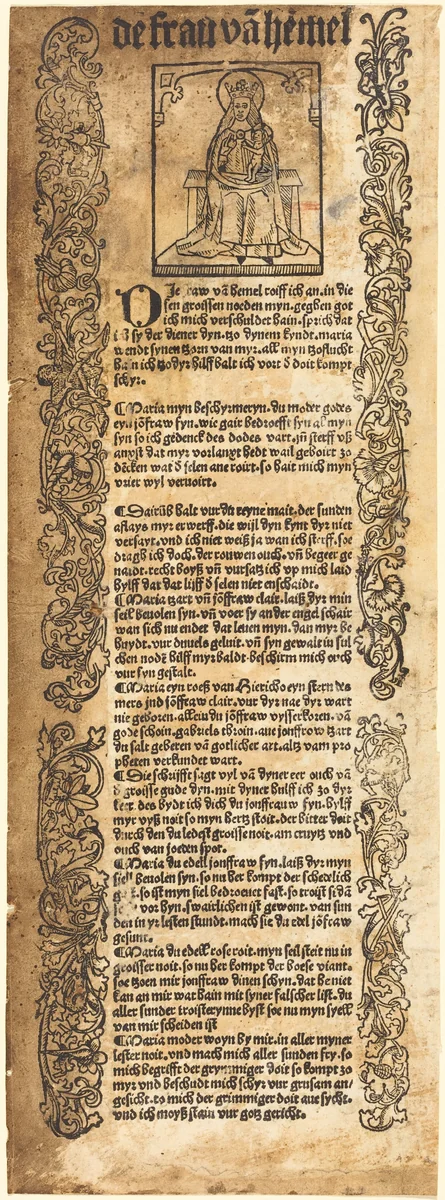 de frau vā hēmel
DJe fraw vā hemel roiff ich an. in die
sen groissen noeden myn. gegben got
ich mich verschuldet hain. sprich dat
ich sy der diener dyn. tzo dynem kyndt. maria
wendt synen tzorn van myr. all myn tzoflucht
hain ich tzo dyr hilff balt ich vort d doit kompt
schyr.
¶Maria myn beschyrmeryn. du moder godes
eyn jōfraw fyn. wie gair bedroefft syn al myn
syn so ich gedenck des dodes vart. jn sterff vß
anxst dat myr vorlanxt hedt wail geboirt zo
dēcken wat d selen ane roirt. so hait mich myn
vrier wyl vervoirt.
¶Dairūb balt vur du reyne mait. der sunden
aflays myr erwerff. die wijl dyn kynt dyr niet
versayt. vnd ich niet weiß ja wan ich sterff. soe
dragh ich doch. der rouwen ouch. vn̄ begeer ge
naidt. recht boyß vn̄ vursatz ich vp mich laid
hylff dat dat lijff d selen niet enschaidt.
¶Maria tzart vn̄ jōffraw clair. laiß dyr min
seil beuolen syn. vn̄ voer sy an der engel schair
wan sich nu endet dat leuen myn. dan myr be
huydt. vur duuels geluit. vn̄ syn gewalt in sul
chen nodē hülff myr baldt. beschirm mich ouch
vur syn gestalt.
¶Maria eyn roeß van Hiericho eyn stern des
mers jnd jōffraw clair. vur dyr nae dyr wart
nie geboren. allein du jōffraw vysserkoren. vā
gode schoin. gabriels throin. aue jonffrow tzart
du salt geberen vā gotlicher art. altz vam pro
pheten verkundet wart.
¶Die schrijfft sagt vyl vā dyner eer ouch vā
d groisse gude dyn. mit dyner hulff ich zo dyr
keer. des bydt ich dich du jonffrau fyn. hylff
myr vyß noit so myn hertz stoit. der bitter doit
durch den du ledest groisse noit. am cruytz vnd
ouch van joeden spot.
¶Maria du edell jonffraw fyn. laiß dyr myn
siell beuolen syn. so nu her kompt der schedelich
so ist myn siel bedroeuet fast. so troist si dā
vor hyn. swairlichen ist gewont. van sun
den in yr lesten stundt. mach sie du edel jōfraw
gesunt.
¶Maria du edell rose roit. myn seil steit nu in
groisser noit. so nu her kompt der boese viant.
soe tzoen mir jonffraw dinen schyn. dat he niet
kan an mir wat hain mit syner falscher list. du
aller sunder troisterynne byst soe nu myn syell
van mir scheiden ist
¶Maria moder woyn by mir. in aller myner
lester noit. vnd mach mich aller sunden fry. so
mich begrifft der grymmiger doit so kompt zo
myr vnd beschudt mich schyr vur grusam an/
gesicht. to mich der grimmiger doit aue sycht.
vnd ich moyß stain vur gotz gericht.